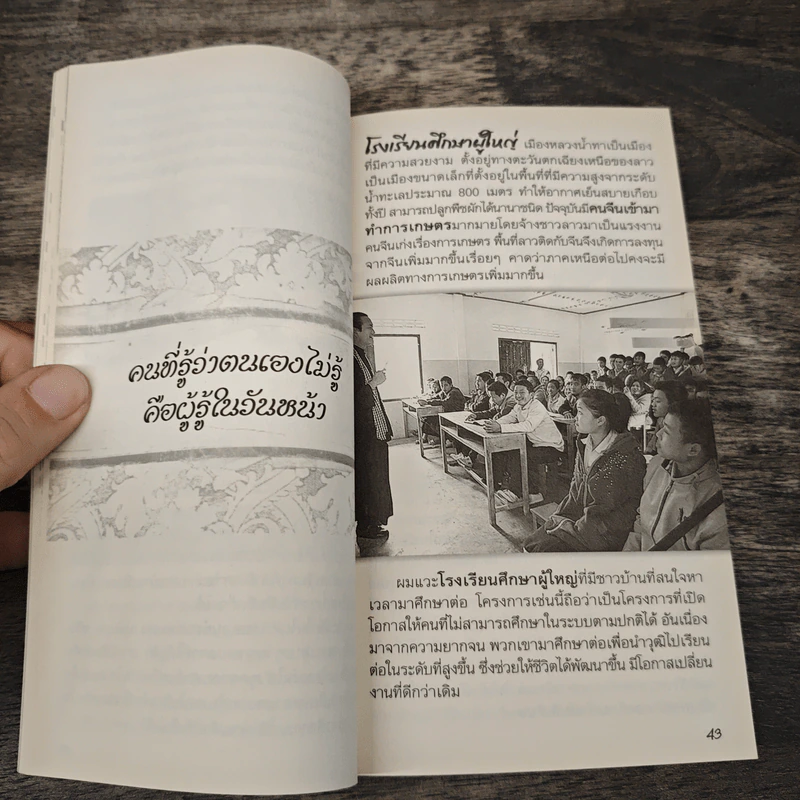 คนที่รู้ว่าตนเองไม่รู้
คือผู้รู้ในวันหน้า
โรงเรียนศึกษาผู้ใหญ่ เมืองหลวงน้ำทาเป็นเมือง
ที่มีความสวยงาม ตั้งอยู่ทางตะวันตกเฉียงเหนือของลาว
เป็นเมืองขนาดเล็กที่ตั้งอยู่ในพื้นที่ที่มีความสูงจากระดับ
น้ำทะเลประมาณ 800 เมตร ทำให้อากาศเย็นสบายเกือบ
ทั้งปี สามารถปลูกพืชผักได้นานาชนิด ปัจจุบันมีคนจีนเข้ามา
ทำการเกษตรมากมายโดยจ้างชาวลาวมาเป็นแรงงาน
คนจีนเก่งเรื่องการเกษตร พื้นที่ลาวติดกับจีนจึงเกิดการลงทุน
จากจีนเพิ่มมากขึ้นเรื่อยๆ คาดว่าภาคเหนือต่อไปคงจะมี
ผลผลิตทางการเกษตรเพิ่มมากขึ้น
ผมแวะโรงเรียนศึกษาผู้ใหญ่ที่มีชาวบ้านที่สนใจหา
เวลามาศึกษาต่อ โครงการเช่นนี้ถือว่าเป็นโครงการที่เปิด
โอกาสให้คนที่ไม่สามารถศึกษาในระบบตามปกติได้ อันเนื่อง
มาจากความยากจน พวกเขามาศึกษาต่อเพื่อนำวุฒิไปเรียน
ต่อในระดับที่สูงขึ้น ซึ่งช่วยให้ชีวิตได้พัฒนาขึ้น มีโอกาสเปลี่ยน
งานที่ดีกว่าเดิม
43